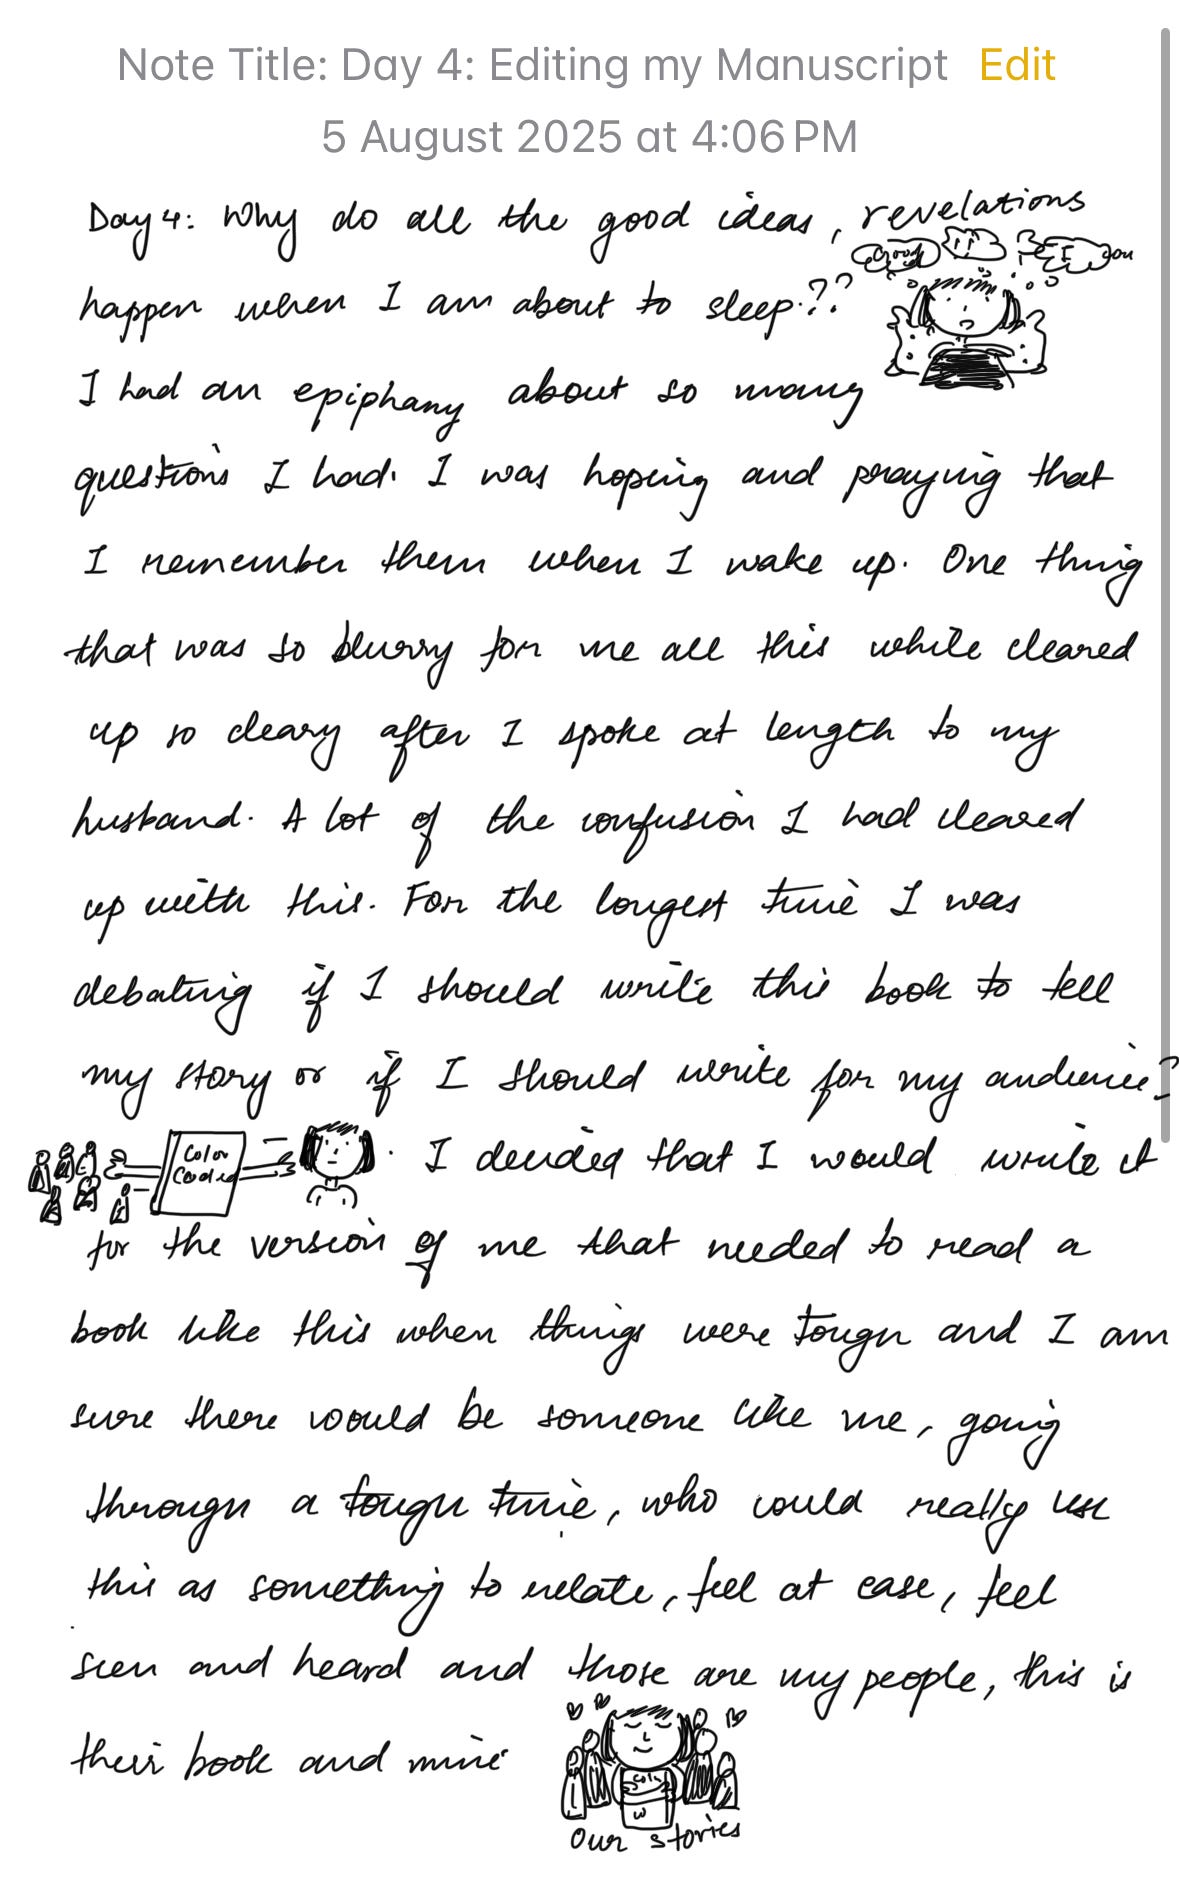 Note Title: Day 4: Editing my Manuscript Edit
5 August 2025 at 4:06 PM
Day 4: Why do all the good ideas, revelations
Good !! I you
happen when I am about to sleep??
I had an epiphany about so many
questions I had. I was hoping and praying that
I remember them when I wake up. One thing
that was so blurry for me all this while cleared
up so cleary after I spoke at length to my
husband. A lot of the confusion I had cleared
up with this. For the longest time I was
debating if I should write this book to tell
my story or if I should write for my audience?
Color
Coded
. I decided that I would write it
for the version of me that needed to read a
book like this when things were tough and I am
sure there would be someone like me, going
through a tough time, who could really use
this as something to relate, feel at ease, feel
seen and heard and those are my people, this is
their book and mine
Our stories